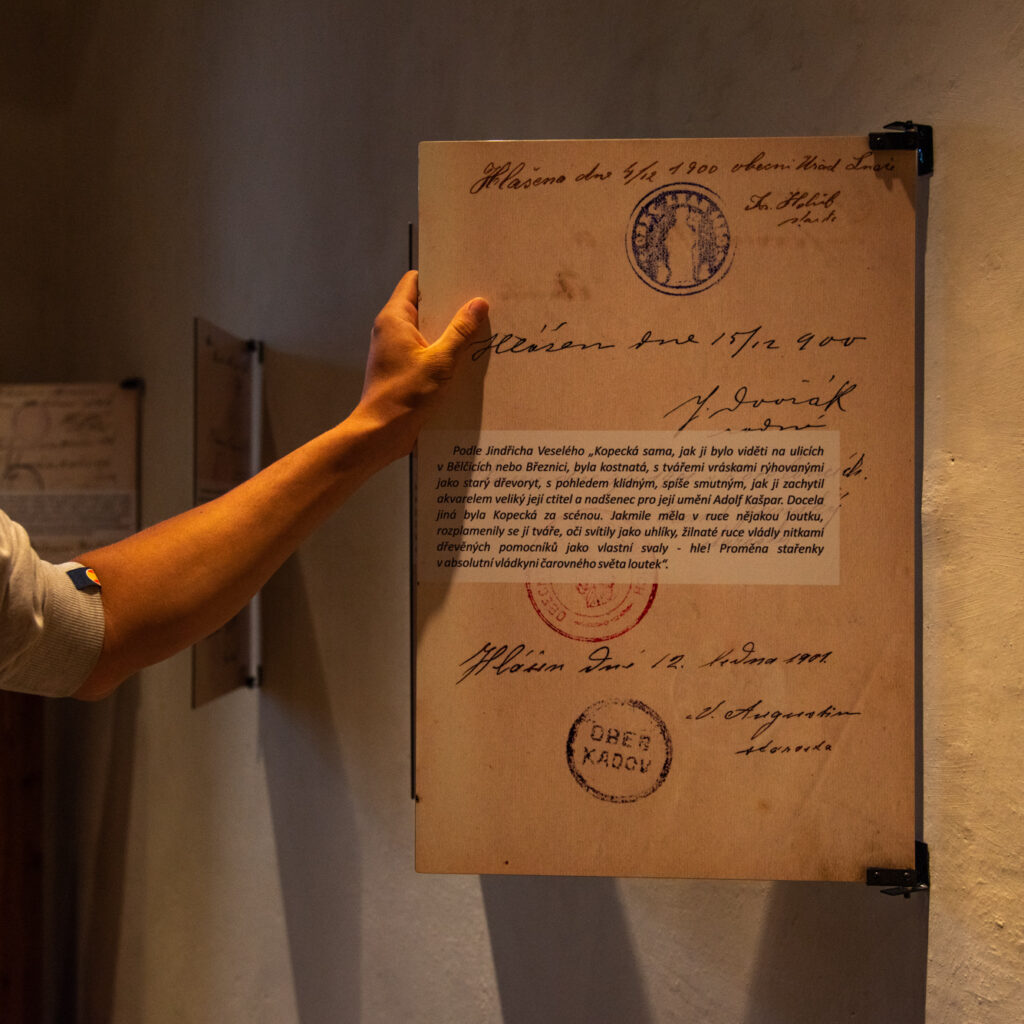 Hlášeno dne 4/12 1900 obecní Úřad Lnáře
starosta
Hlášen dne 15/12 900
J. Dvořák
Podle Jindřicha Veselého „Kopecká sama, jak ji bylo viděti na ulicích
v Bělčicích nebo Březnici, byla kostnatá, s tvářemi vráskami rýhovanými
jako starý dřevoryt, s pohledem klidným, spíše smutným, jak ji zachytil
akvarelem veliký její ctitel a nadšenec pro její umění Adolf Kašpar. Docela
jiná byla Kopecká za scénou. Jakmile měla v ruce nějakou loutku,
rozplamenily se jí tváře, oči svítily jako uhlíky, žilnaté ruce vládly nitkami
dřevěných pomocníků jako vlastní svaly - hle! Proměna stařenky
v absolutní vládkyni čarovného světa loutek“.
Hlášen dne 12. ledna 1901.
V. Augustin
starosta
OBEC
KADOV